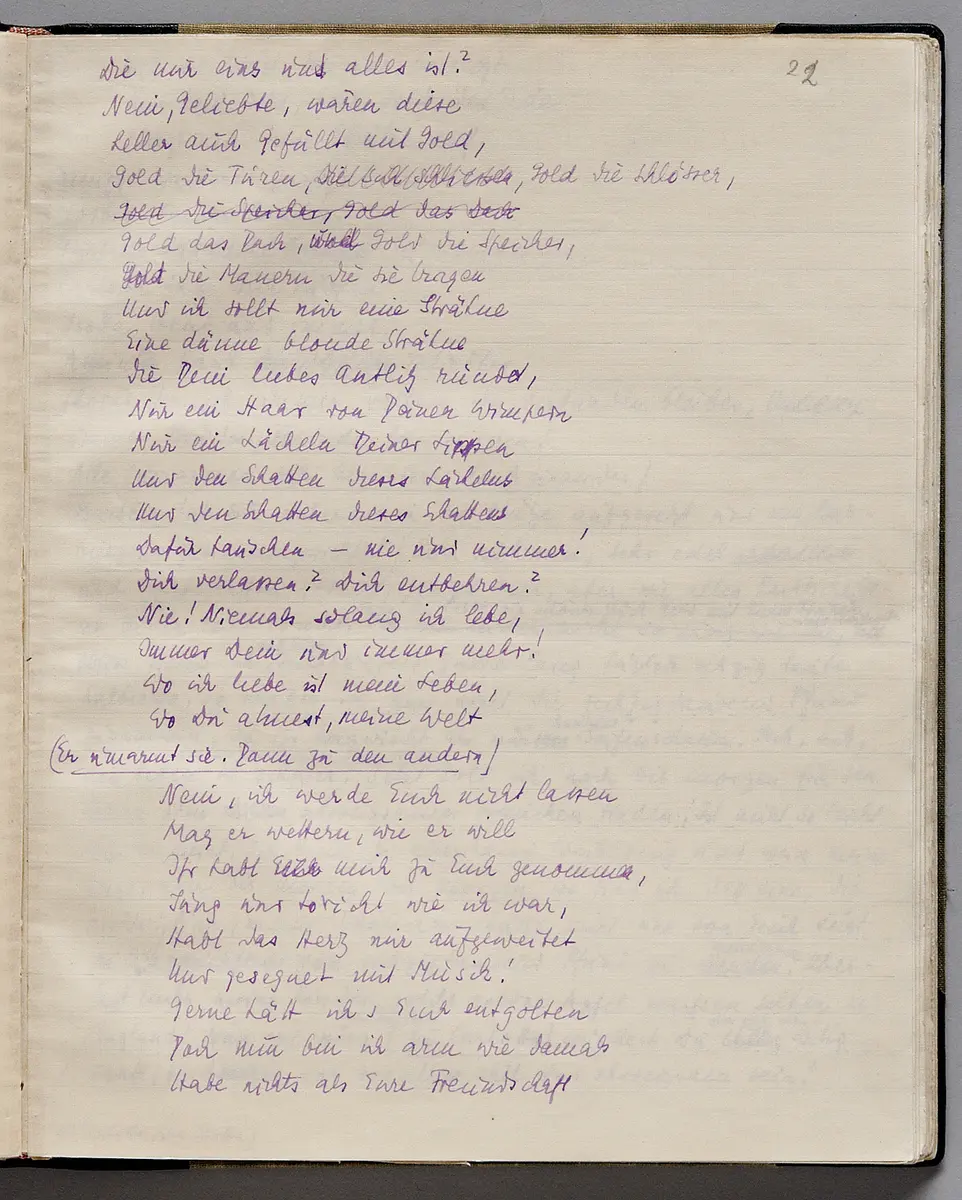 22
Die mir eins und alles ist?
Nein, Geliebte, wären diese
Keller auch gefüllt mit Gold,
Gold die Türen, die sich schliessen, Gold die Schlösser,
Gold die Speicher, Gold das Dach
Gold das Dach, und Gold die Speicher,
Gold die Mauern die sie tragen
Und ich sollt nur eine Strähne
Eine dünne blonde Strähne
Die Dein liebes Antlitz ründet,
Nur ein Haar von Deinen Wimpern
Nur ein Lächeln Deiner Lippen
Und den Schatten dieses Lächelns
Und den Schatten dieses Schattens
Dafür tauschen – nie und nimmer!
Dich verlassen? Dich entbehren?
Nie! Niemals solang ich lebe,
Immer Dein und immer mehr!
Wo ich liebe ist mein Leben,
Wo Du atmest, meine Welt
(Er umarmt sie. Dann zu den andern)
Nein, ich werde Euch nicht lassen
Mag er wettern, wie er will
Ihr habt Euch mich zu Euch genommen,
Jung und töricht wie ich war,
Habt das Herz mir aufgeweitet
Und gesegnet mit Musik!
Gerne hätt ich s Euch entgolten
Doch nun bin ich arm wie damals
Habe nichts als Eure Freundschaft